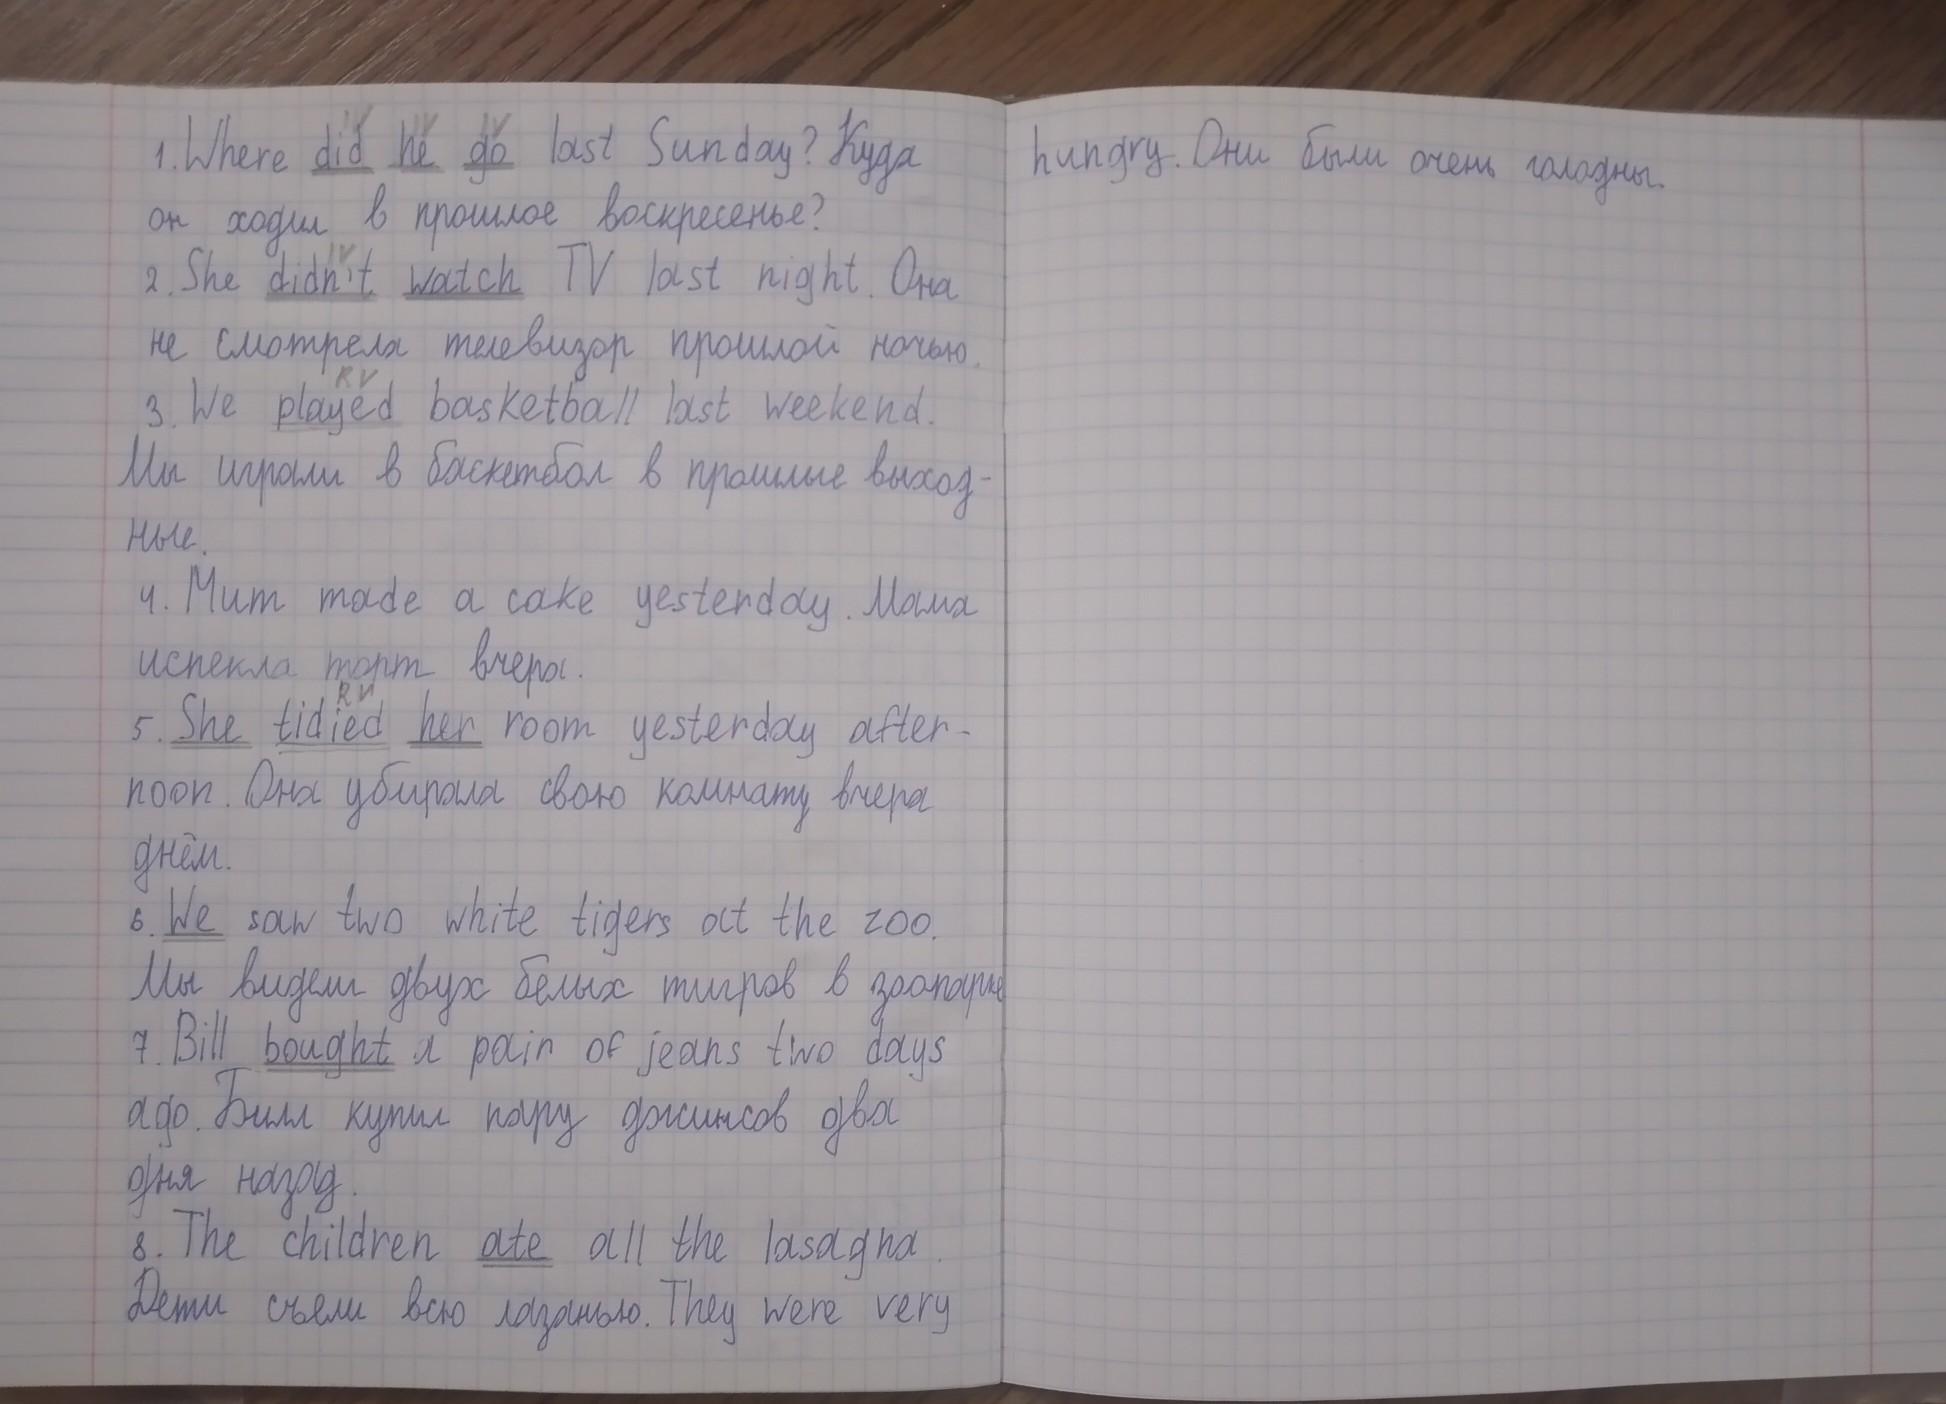 IV IV IV
1. Where did he go last Sunday? Куда
он ходил в прошлое воскресенье?
IV
2. She didn't watch TV last night. Она
не смотрела телевизор прошлой ночью.
RV
3. We played basketball last weekend.
Мы играли в баскетбол в прошлые выход-
ные.
4. Mum made a cake yesterday. Мама
испекла торт вчера.
RV
5. She tidied her room yesterday after-
noon. Она убирала свою комнату вчера
днём.
6. We saw two white tigers at the zoo.
Мы видели двух белых тигров в зоопарке
7. Bill bought a pair of jeans two days
ago. Билл купил пару джинсов два
дня назад.
8. The children ate all the lasagna.
Дети съели всю лазанью. They were very
hungry. Они были очень голодны.